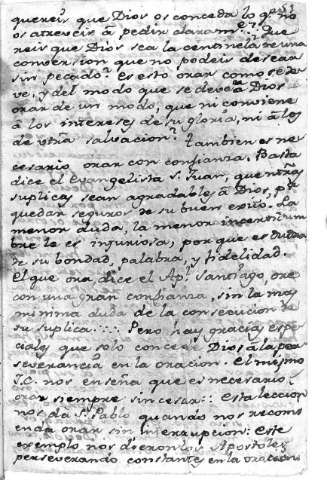 quereis que Dios os conceda lo q.e no
os atreveis à pedir claram.te? Que
reis que Dios sea la centinela de una
conversion que no podeis desear
sin pecado? Es esto orar como se de
ve, y del modo que se deve à Dios
orar de un modo, que ni conviene
à los intereses de su gloria, ni à los
de v̅tra salvacion? Tambien es ne
cesario orar con confianza. Basta
dice el Evangelista S. Juan, que n̅tras
suplicas sean agradables à Dios, p.a
quedar seguros de su buen exito. La
menor duda, la menor incertidum
bre le es injuriosa, por que es dudar
de su bondad, palabra, y fidelidad.
El que ora, dice el Ap.l Santiago, ore
con una gran confianza, sin la mas
minima duda de la consecucion de
su suplica. Pero hay gracias espe
ciales que solo concede Dios à la per
severancia en la oracion. El mismo
S.C. nos enseña que es necesario
orar siempre sin cesar: Esta leccion
nos da S. Pablo quando nos recomi
enda orar sin interrupcion. Este
exemplo nos dieron los Apostoles
perseverando constantes en la oracion